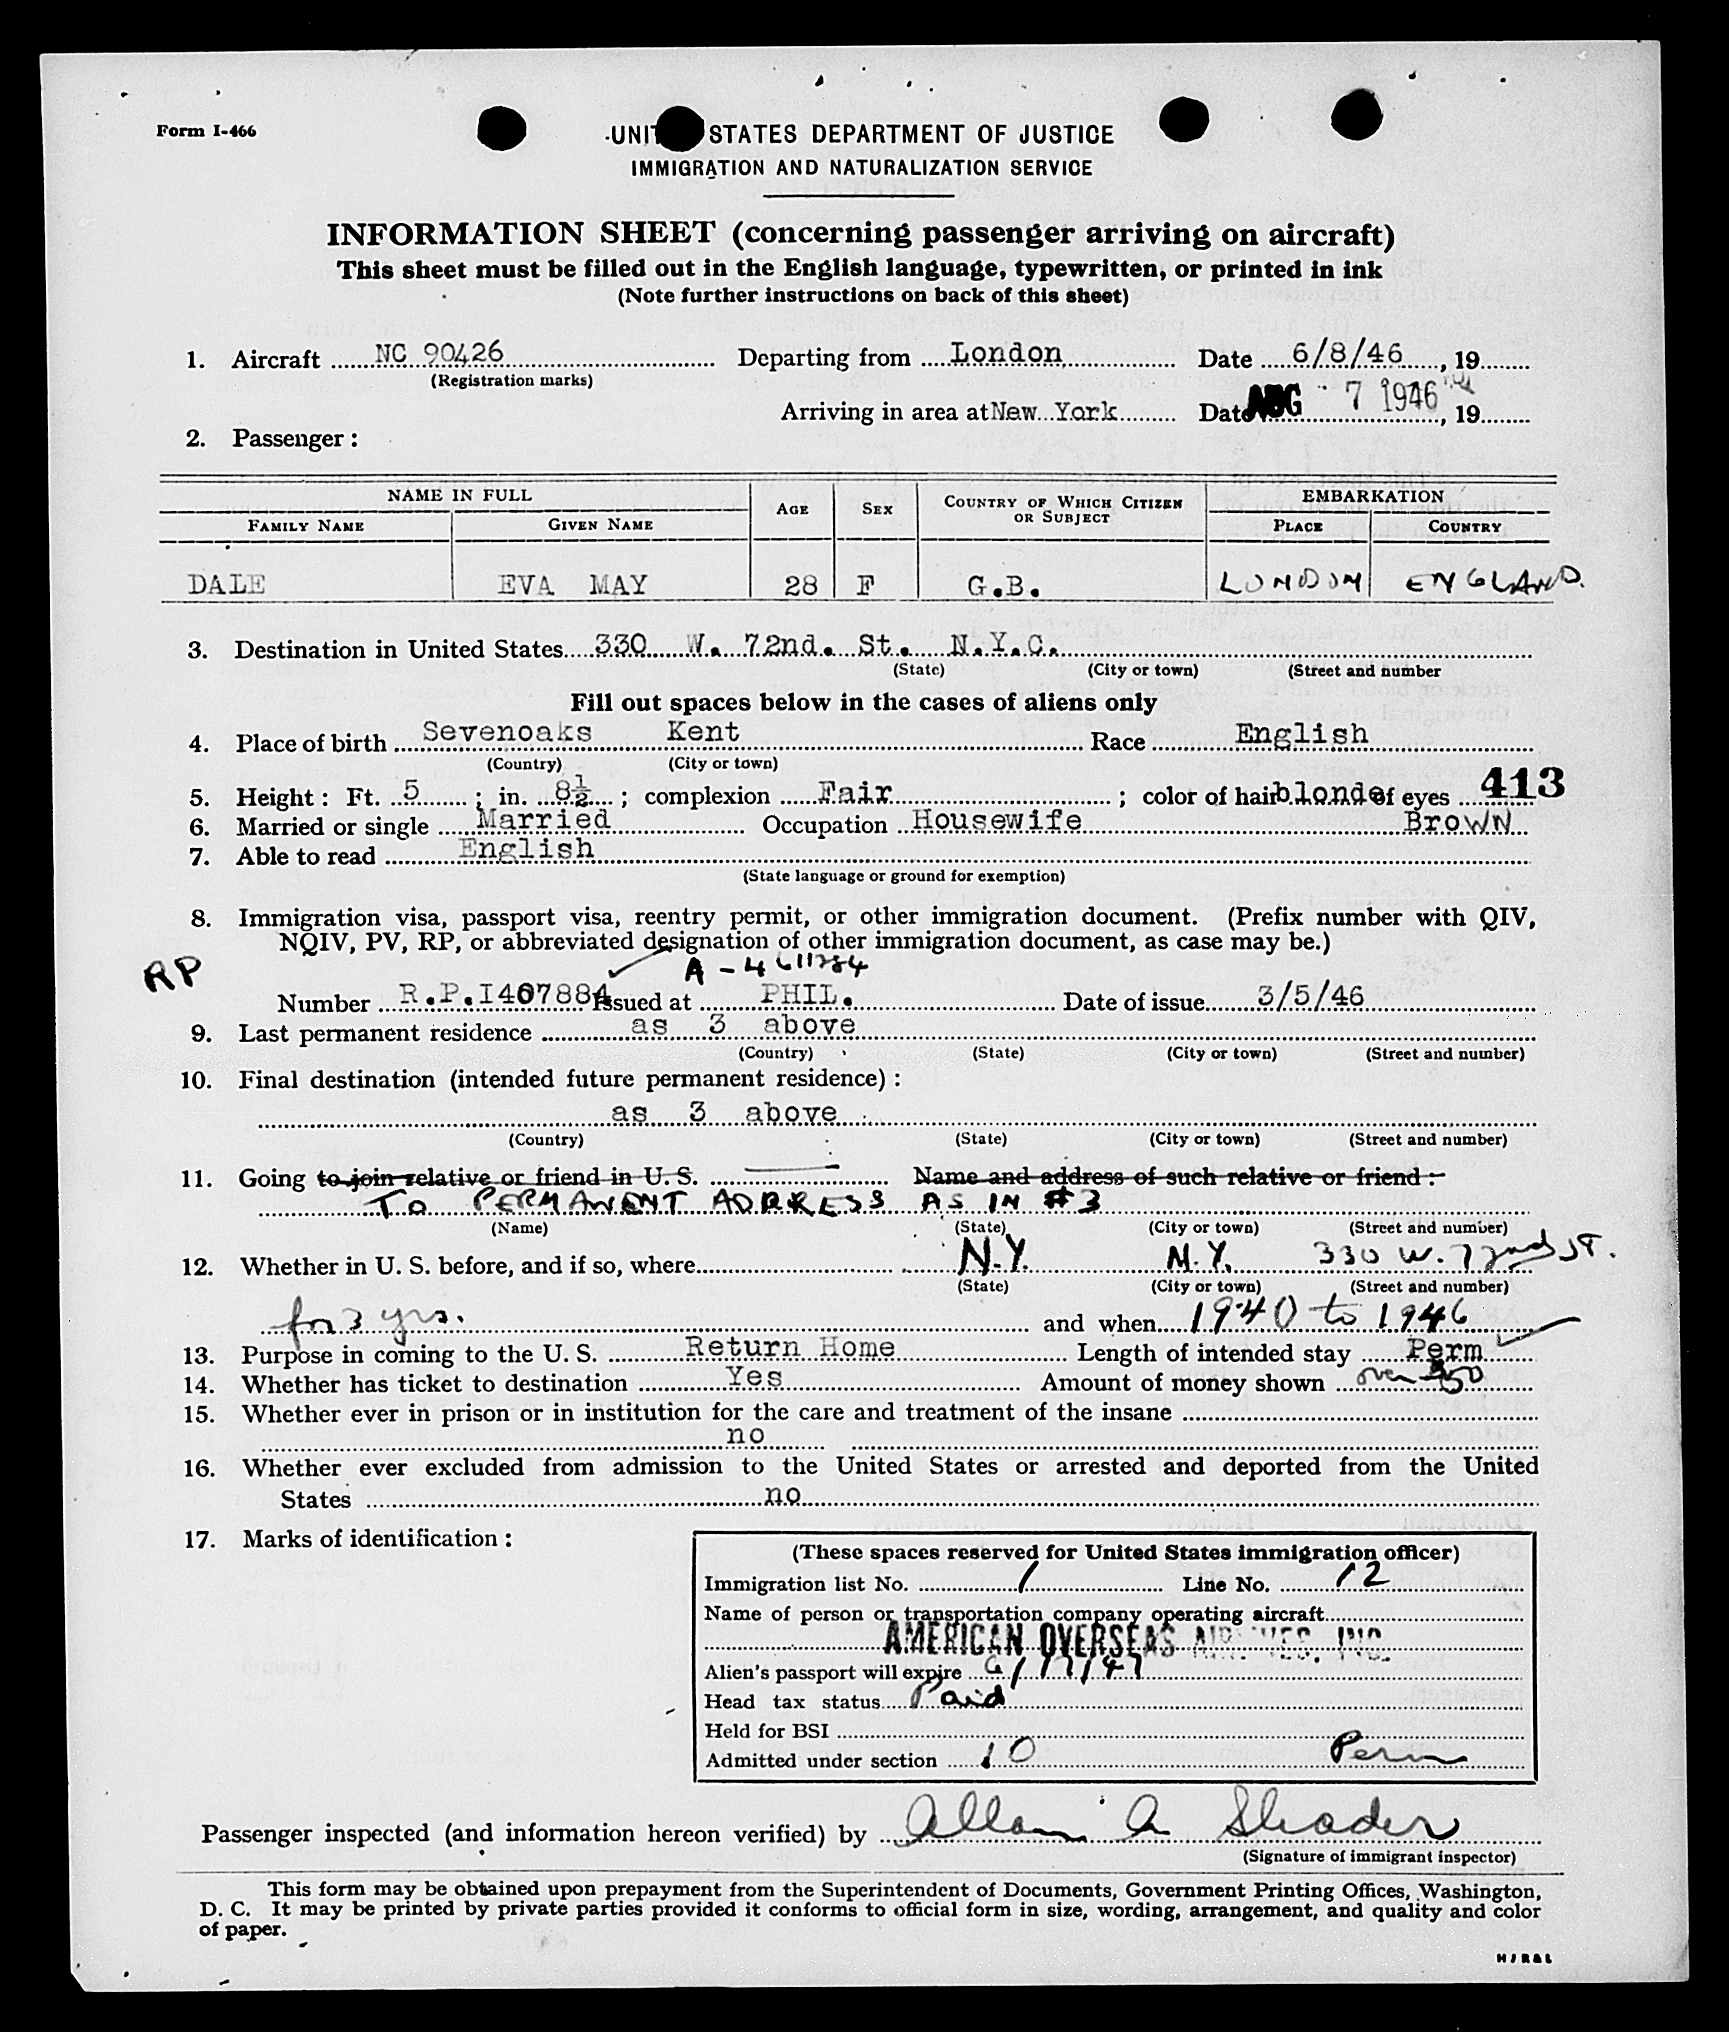 Form I-466
UNITED STATES DEPARTMENT OF JUSTICE
IMMIGRATION AND NATURALIZATION SERVICE
INFORMATION SHEET (concerning passenger arriving on aircraft)
This sheet must be filled out in the English language, typewritten, or printed in ink
(Note further instructions on back of this sheet)
1. Aircraft NC 90426 Departing from London Date 6/8/46, 19
(Registration marks)
Arriving in area at New York Date AUG 7 1946, 19
2. Passenger:
NAME IN FULL AGE SEX COUNTRY OF WHICH CITIZEN OR SUBJECT EMBARKATION
FAMILY NAME GIVEN NAME PLACE COUNTRY
DALE EVA MAY 28 F G.B. LONDON ENGLAND.
3. Destination in United States 330 W. 72nd. St. N.Y.C.
(State) (City or town) (Street and number
Fill out spaces below in the cases of aliens only
4. Place of birth Sevenoaks Kent Race English
(Country) (City or town)
5. Height: Ft. 5; in. 8½; complexion Fair; color of hair blonde of eyes 413
6. Married or single Married Occupation Housewife BroWN
7. Able to read English
(State language or ground for exemption)
8. Immigration visa, passport visa, reentry permit, or other immigration document. (Prefix number with QIV,
NQIV, PV, RP, or abbreviated designation of other immigration document, as case may be.)
RP A-4611784
Number R.P.I407884 Issued at PHIL. Date of issue 3/5/46
9. Last permanent residence as 3 above
(Country) (State) (City or town) (Street and number)
10. Final destination (intended future permanent residence):
as 3 above
(Country) (State) (City or town) (Street and number)
11. Going to join relative or friend in U. S. Name and address of such relative or friend:
TO PERMANENT ADDRESS AS IN #3
(Name) (State) (City or town) (Street and number)
12. Whether in U. S. before, and if so, where N.Y. N.Y. 330 W. 72nd ST.
(State) (City or town) (Street and number)
for 3 yrs. and when 1940 to 1946
13. Purpose in coming to the U. S. Return Home Length of intended stay Perm
14. Whether has ticket to destination Yes Amount of money shown over $50
15. Whether ever in prison or in institution for the care and treatment of the insane
no
16. Whether ever excluded from admission to the United States or arrested and deported from the United
States no
17. Marks of identification:
(These spaces reserved for United States immigration officer)
Immigration list No. 1 Line No. 12
Name of person or transportation company operating aircraft
AMERICAN OVERSEAS AIRLINES, INC.
Alien's passport will expire 6/17/47
Head tax status Paid
Held for BSI
Admitted under section 10 Perm
Passenger inspected (and information hereon verified) by Allan A Shader
(Signature of immigrant inspector)
This form may be obtained upon prepayment from the Superintendent of Documents, Government Printing Offices, Washington,
D. C. It may be printed by private parties provided it conforms to official form in size, wording, arrangement, and quality and color
of paper.